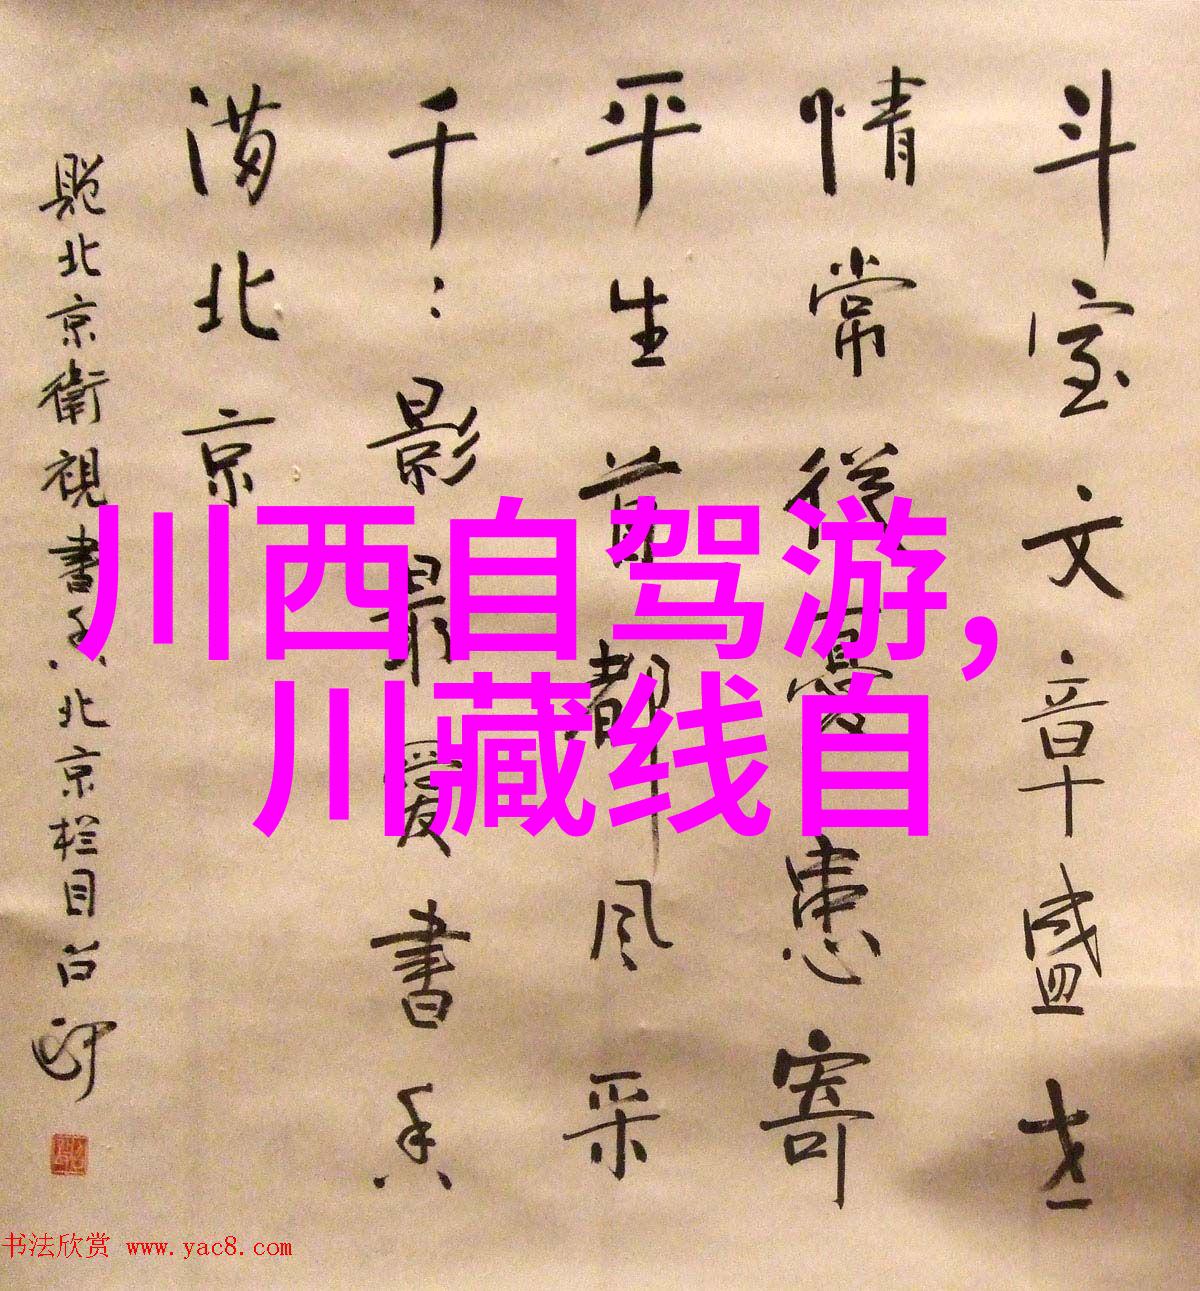 斗室文章盛世
情常從憂患寄
平生首都风采
千〻影最愛書香
满北京
北京衛視書香北京栏目
川西自驾游,
川藏线自
书法欣赏 www.yac8.com